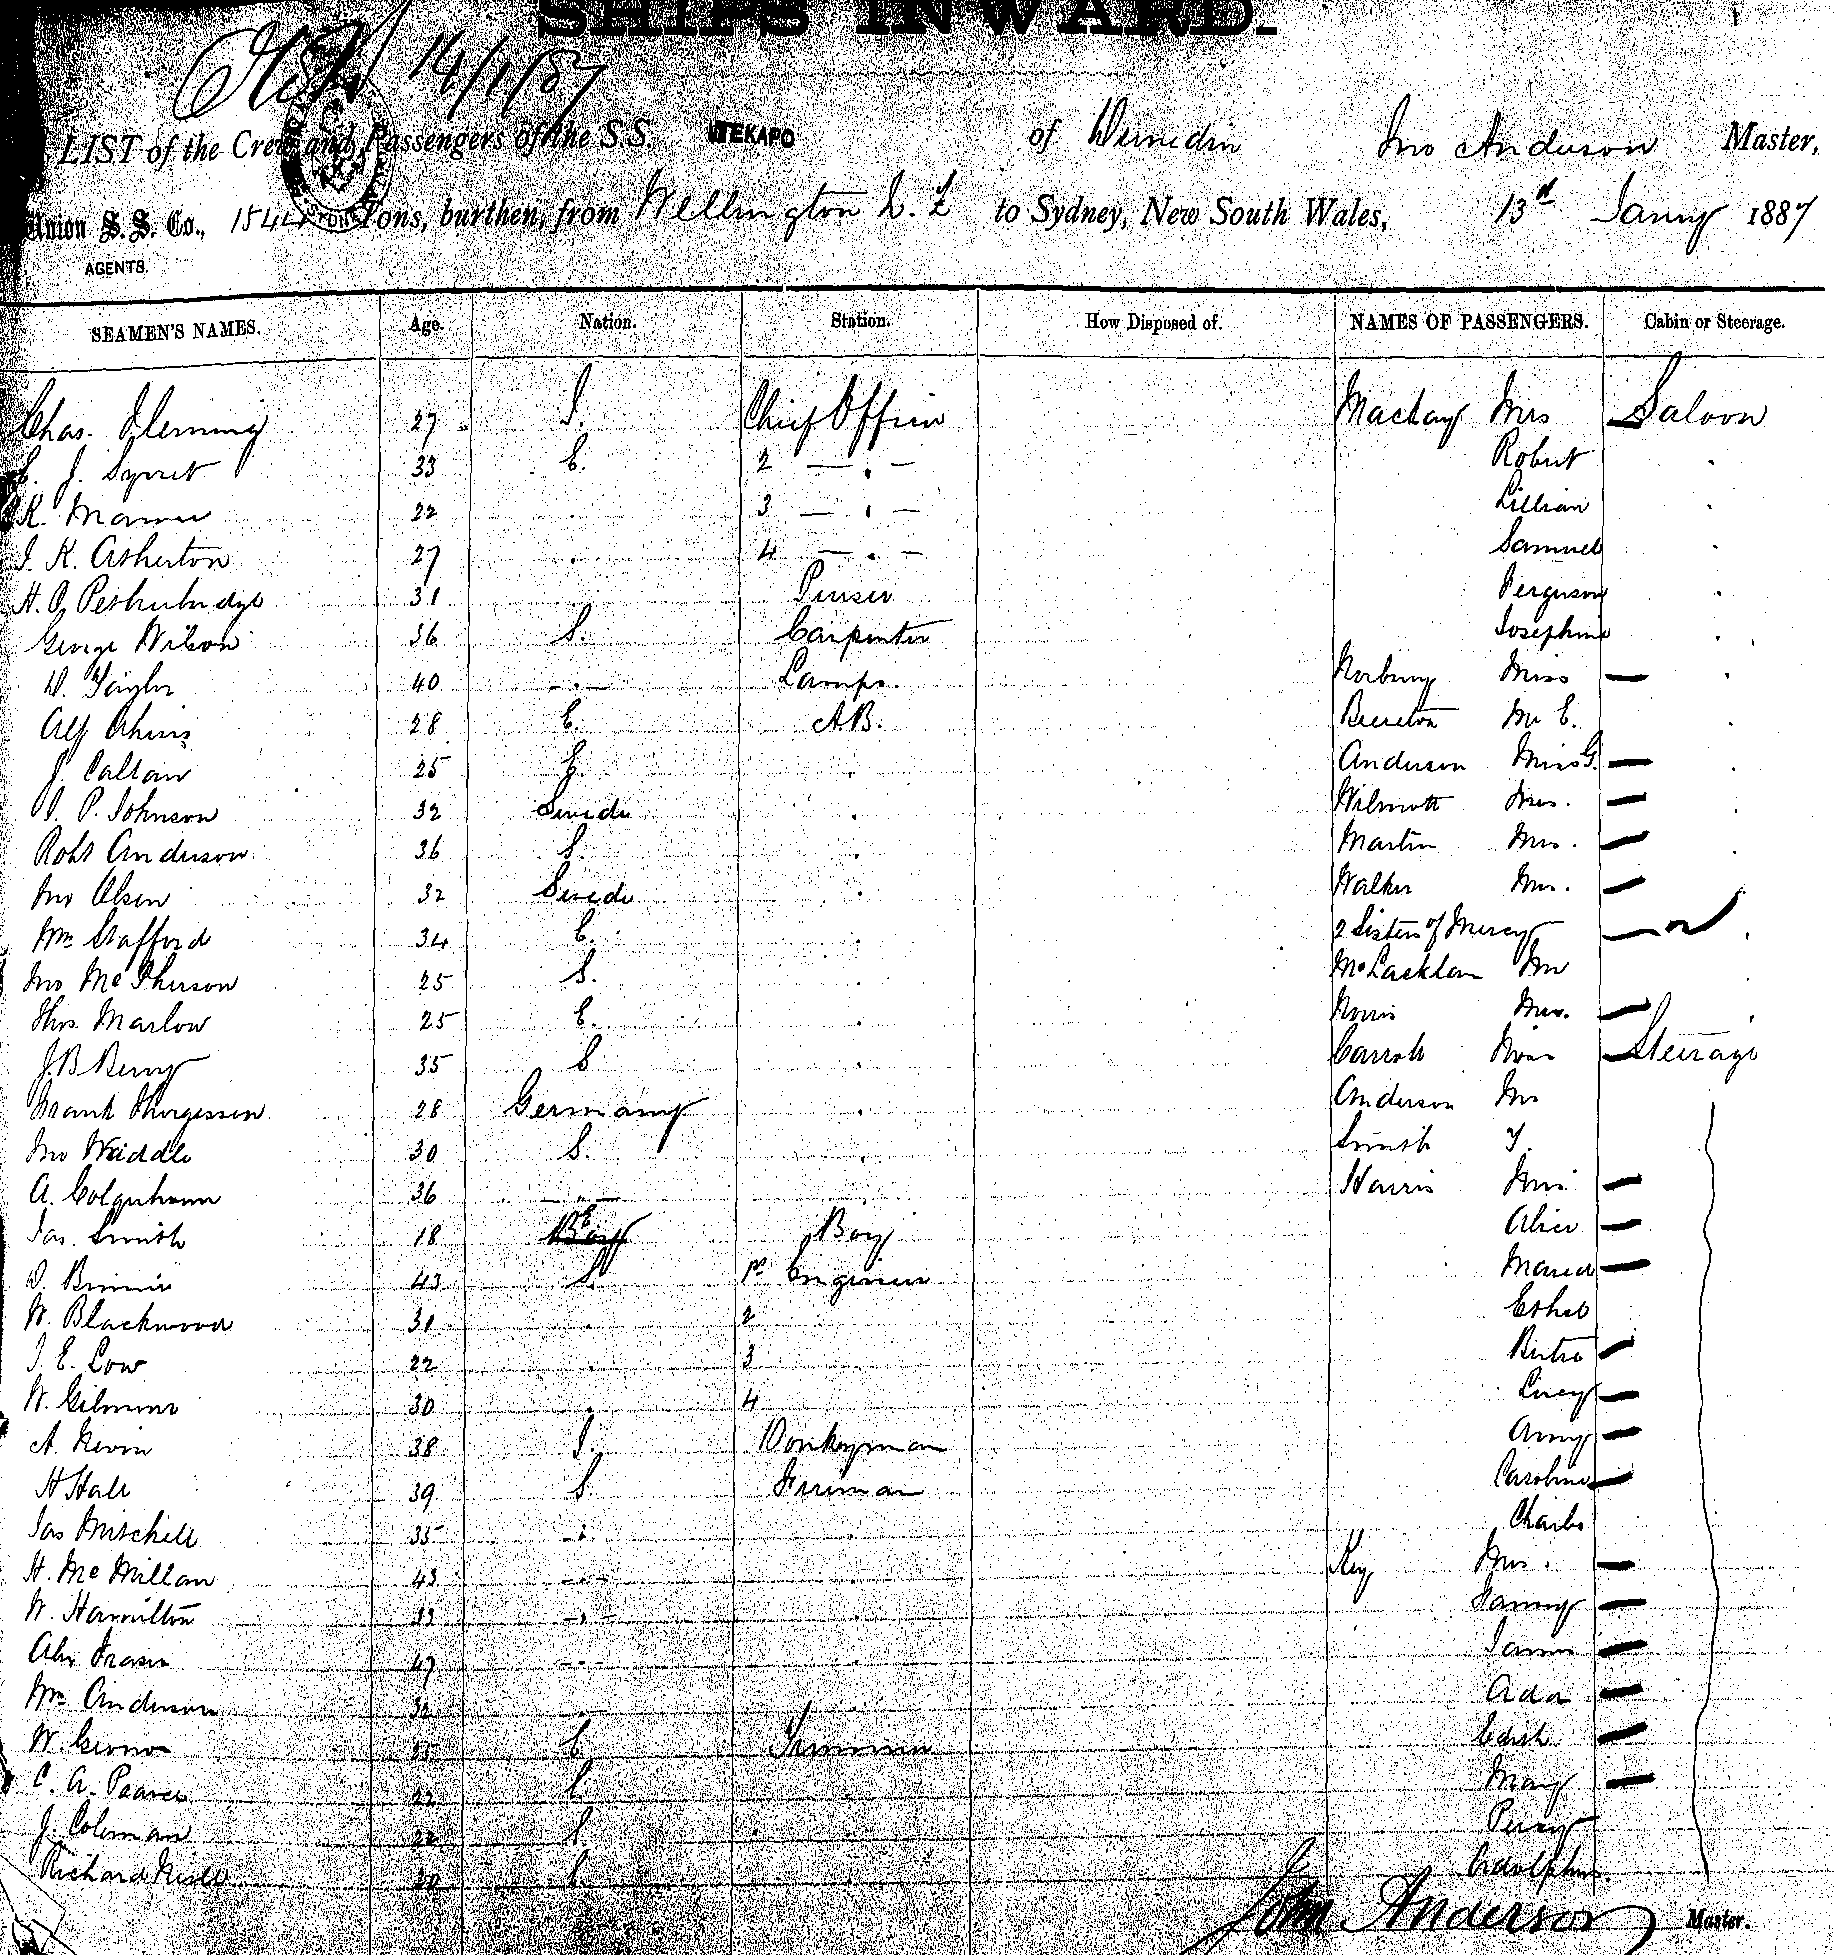 SHIPS INWARD.
14/1/87
LIST of the Crew and Passengers of the S.S. TEKAPO of Dunedin Jno Anderson Master,
Union S. S. Co., Tons, burthen, from Wellington N. Z to Sydney, New South Wales, 13th Jany 1887
AGENTS.
SEAMEN'S NAMES. Age. Nation. Station. How Disposed of. NAMES OF PASSENGERS. Cabin or Steerage.
Chas. Fleming 27 I. Chief Officer Mackay Mrs Saloon
J. 33 E. 2 — . — Robert .
R. 22 . 3 — . — Lillian .
K. Atherton 27 . 4 — . — Samuel .
H. Petherbridge 31 Purser Ferguson .
George Wilson 36 S. Carpenter Josephine .
D. Taylor 40 — . — Lamps. Norbury Miss — .
Alf 28 E. A.B. Brereton Mr E. .
J. 25 E. . Anderson Miss G. — .
P. Johnson 32 Swede . Wilmott Mrs. — .
Robt Anderson 36 S. . Martin Mrs. — .
Jno Olsen 32 Swede . Walker Mrs. —
Wm Stafford 34 E. . 2 Sisters of Mercy — .
Jno McPherson 25 S. . McLachlan Mr .
Thos. Marlow 25 E. . Norris Mrs. — .
J. B Berry 35 S . Carroll — Steerage
Frank 28 Germany . Anderson
Jno Waddle 30 S. . Smith
A. Colquhoun 36 — . — Harris Mrs —
Jas. Smith 18 E Boy Alice —
D. Binnie 43 S. 1st Engineer Maria —
W. Blackwood 31 . 2 Ethel
E. Low 22 . 3 —
W. Gilmour 30 . 4 Lucy —
A. Nevin 38 I. Donkeyman Amy —
H Hall 39 S. Fireman Caroline —
Jas Mitchell 35 — . . Charles
H. McMillan 43 — . — . Key Mrs. —
W. Hamilton 33 — . — . Fanny —
Alex Fraser 47 — . — . —
Wm Anderson 32 — . Ada —
W. 25 E. Trimmer Edith —
C. A. Pearce 22 E. . May —
J. Coleman 22 S. . Percy
Richard 20 . Adolphus.
John Anderson Master.